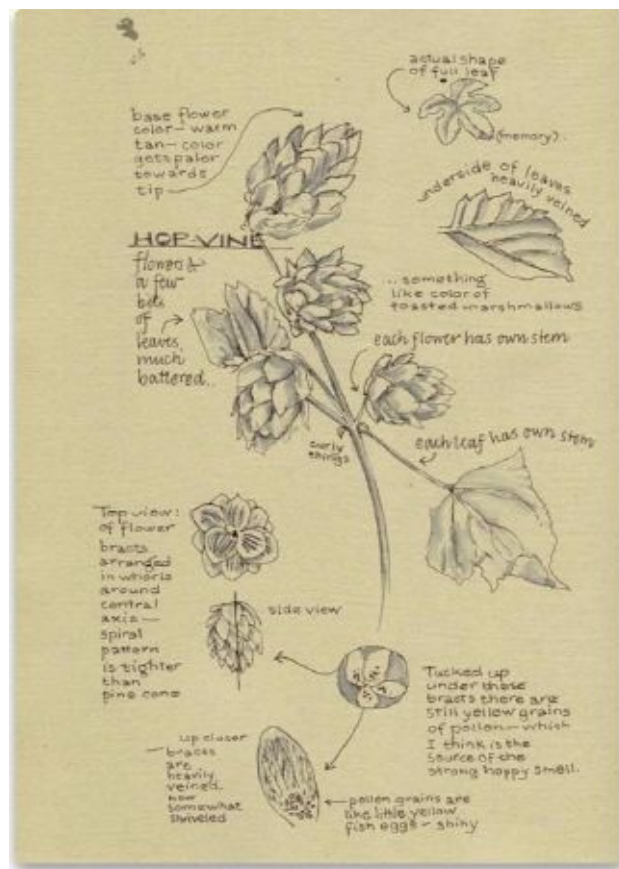 actual shape
of full leaf
(memory).
base flower
color - warm
tan - color
gets palor
towards
tip
underside of leaves
heavily veined
HOP-VINE
flowers &
a few
bits
of
leaves,
much
battered...
...something
like color of
toasted marshmallows
each flower has own stem
curly
things
each leaf has own stem
Top view:
of flower
bracts
arranged
in whorls
around
central
axis —
spiral
pattern
is tighter
than
pine cone
side view
Tucked up
under these
bracts there are
still yellow grains
of pollen — which
I think is the
source of the
strong hoppy smell.
up closer
bracts
are
heavily
veined.
now
somewhat
shriveled
pollen grains are
like little yellow
fish eggs - shiny